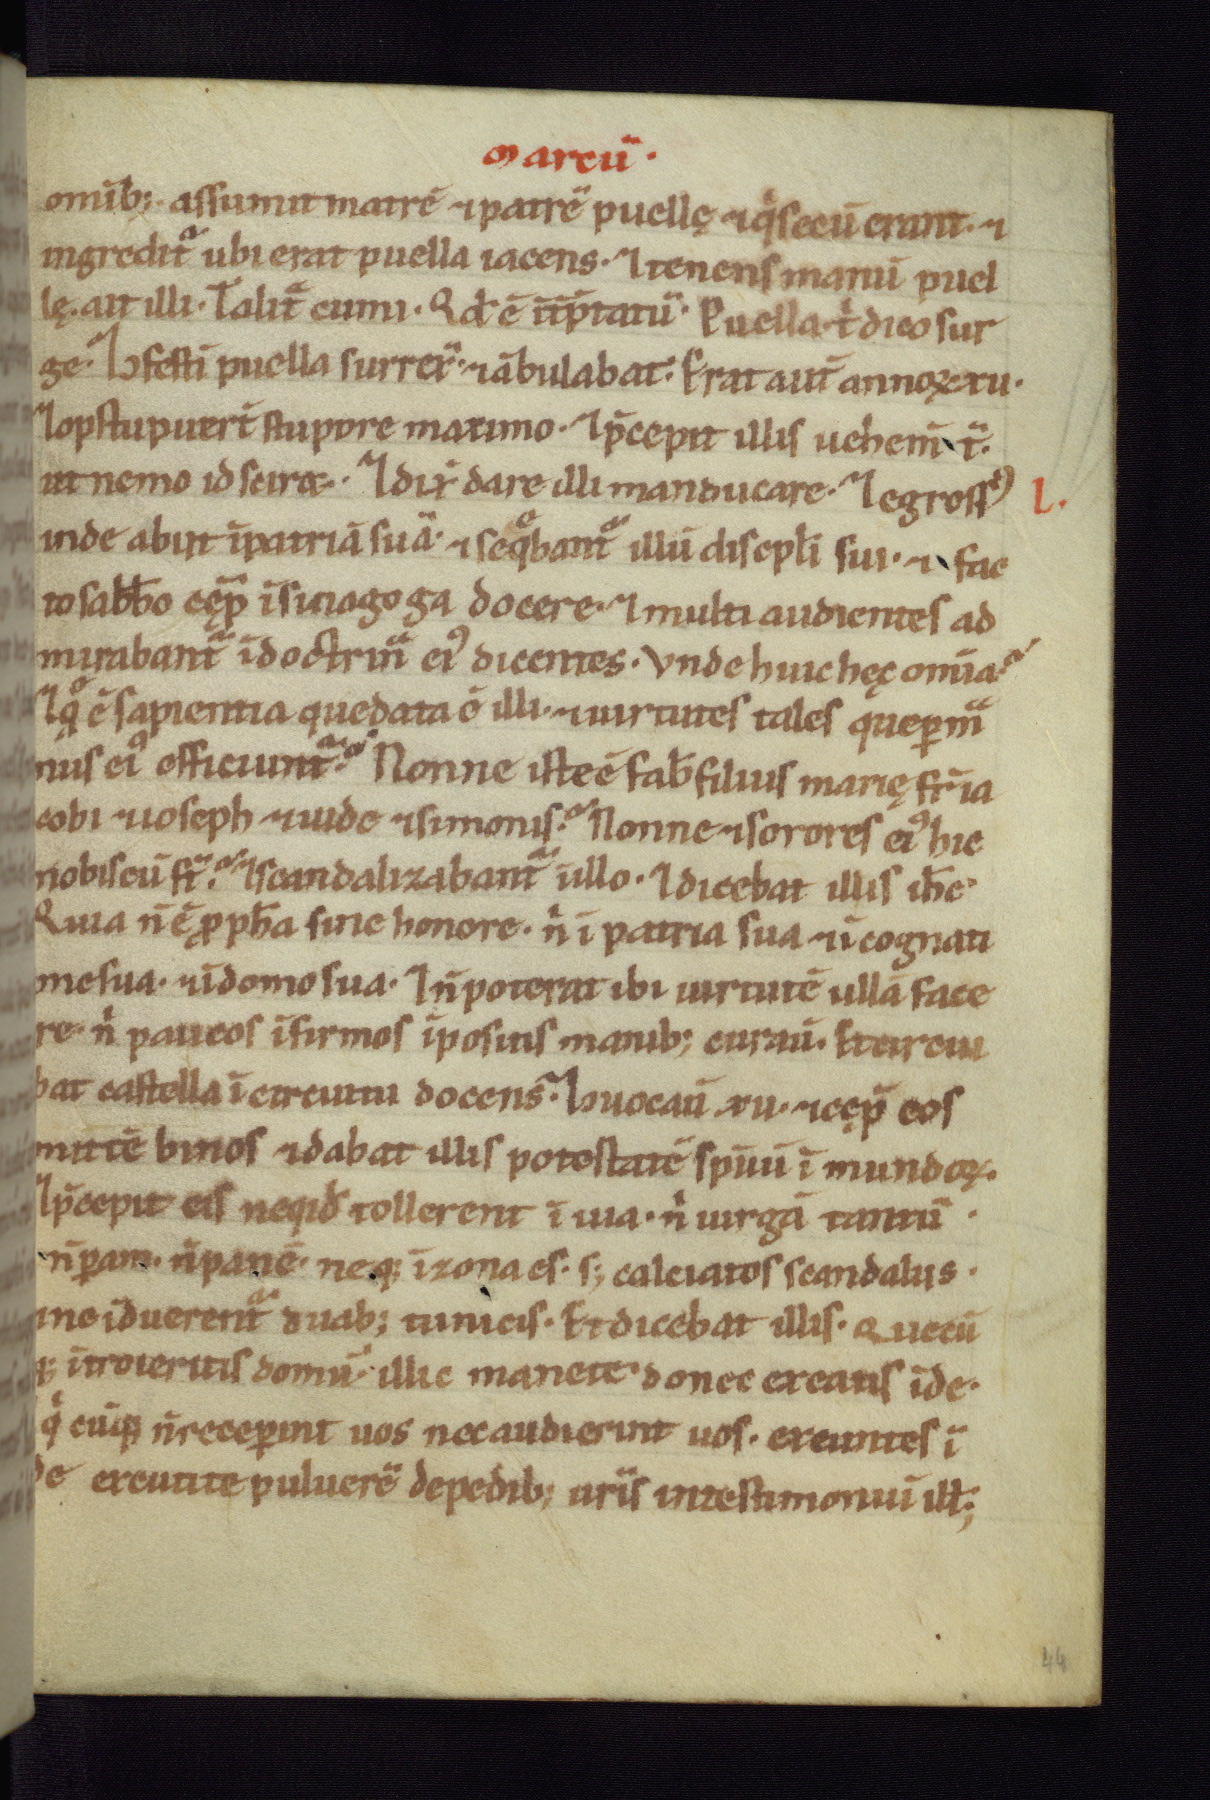 marcū·
omīb; assumit matrē ⁊ patrē puellę ⁊ q̇ secū erant· ⁊
ingredit᷑ ubi erat puella iacens· ⁊ tenens manū puel
lę· ait illi· Talit᷑ cumi· Qd̄ ē īt̄p̄tatū· Puella· t̄ dico sur
ge· ⁊ 9festī puella surrex̄· ⁊ ābulabat· Erat aut̄ annoꝝ xii·
⁊ opstupuer̄t stupore maximo· ⁊ p̄cepit illis uehem̄ t̄·
ut nemo id sciret· ⁊ dix̄ dare illi manducare· ⁊ egressꝰ
L·
inde abiit ī patriā suā· ⁊ seq̄bant᷑ illū discipl̄i sui· ⁊ fac
to sab̄bo cęp̄ ī sinagoga docere· ⁊ multi audientes ad
mirabant᷑ ī doctrina eiꝰ dicentes· Vnde huic hęc om̄ia?
⁊ q̄ ē sapientia que data ē illi· ⁊ uirtutes tales que ꝑ ma
nus eiꝰ efficiunt᷑? Nonne iste ē fab̄ filius marię fr̄ ia
cobi ⁊ ioseph ⁊ iude ⁊ simonis? Nonne ⁊ sorores eiꝰ hic
nobiscū st̄? ⁊ scandalizabant᷑ ī illo· ⁊ dicebat illis ih̄c·
Quia n̄ ē ꝓph̄a sine honore· n̄ ī patria sua ⁊ ī cognati
one sua· ⁊ ī domo sua· ⁊ n̄ poterat ibi uirtutē ullā face
re· n̄ paucos īfirmos īpositis manib; curau̅· Et circui
bat castella ī circuitu docens· ⁊ 9uocau̅ xii· ⁊ cęp̄ eos
mittē binos ⁊ dabat illis potestatē sp̄uū ī mundoꝝ·
⁊ p̄cepit eis neqid̄ tollerent ī uia· n̄ uirgā tantū·
n̄ peram· n̄ panē· neq; ī zona es· s; calciatos scandaliis·
⁊ ne īduerent᷑ duab; tunicis· Et dicebat illis· Quocū
q; ītroieritis domū· illic manete donec exeatis īde·
⁊ q̇ cūq; n̄ receperint uos nec audierint uos· exeuntes ī
de excutite puluerē de pedib; ur̄is in testimoniū ill̄;
44